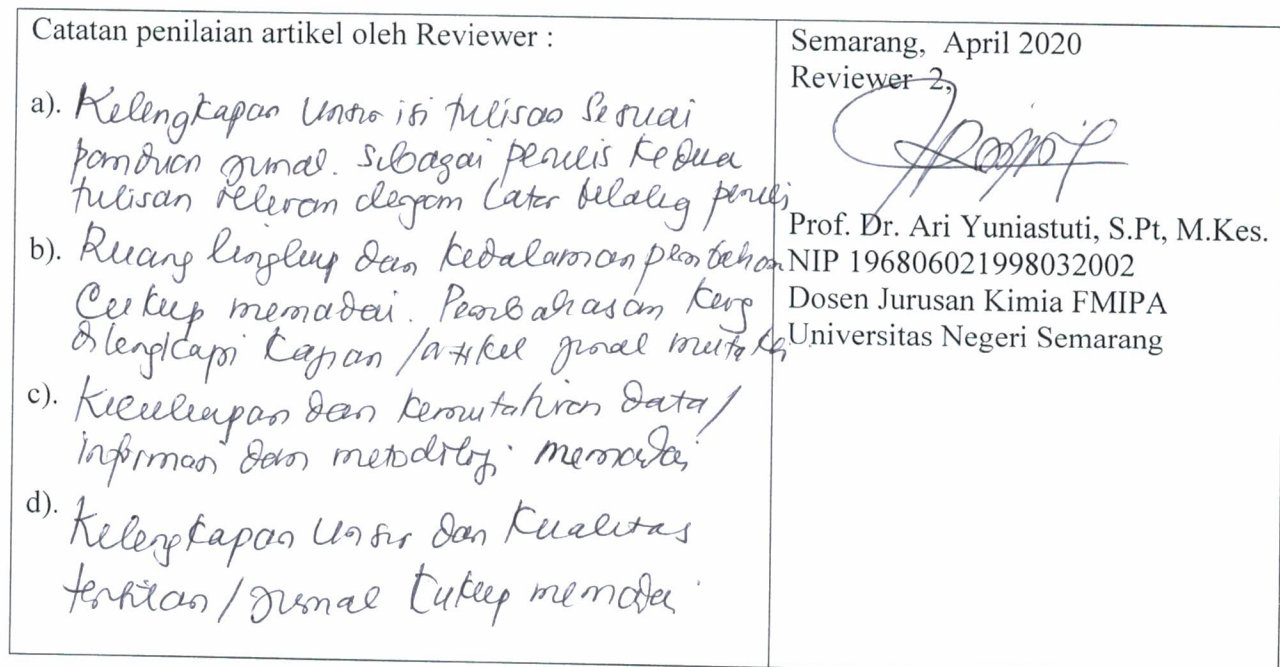 Catatan penilaian artikel oleh Reviewer :
a). Kelengkapan unsur isi tulisan sesuai
panduan jurnal. sebagai penulis kedua
tulisan relevan dengan latar belakang penulis
b). Ruang lingkup dan kedalaman pembahasan
Cukup memadai. Pembahasan kurang
dilengkapi kajian /artikel jurnal mutakhir
c). Kecukupan dan kemutahiran data/
informasi dan metodologi memadai
d). Kelengkapan unsur dan kualitas
terbitan/jurnal cukup memadai
Semarang, April 2020
Reviewer 2,
Prof. Dr. Ari Yuniastuti, S.Pt, M.Kes.
NIP 196806021998032002
Dosen Jurusan Kimia FMIPA
Universitas Negeri Semarang